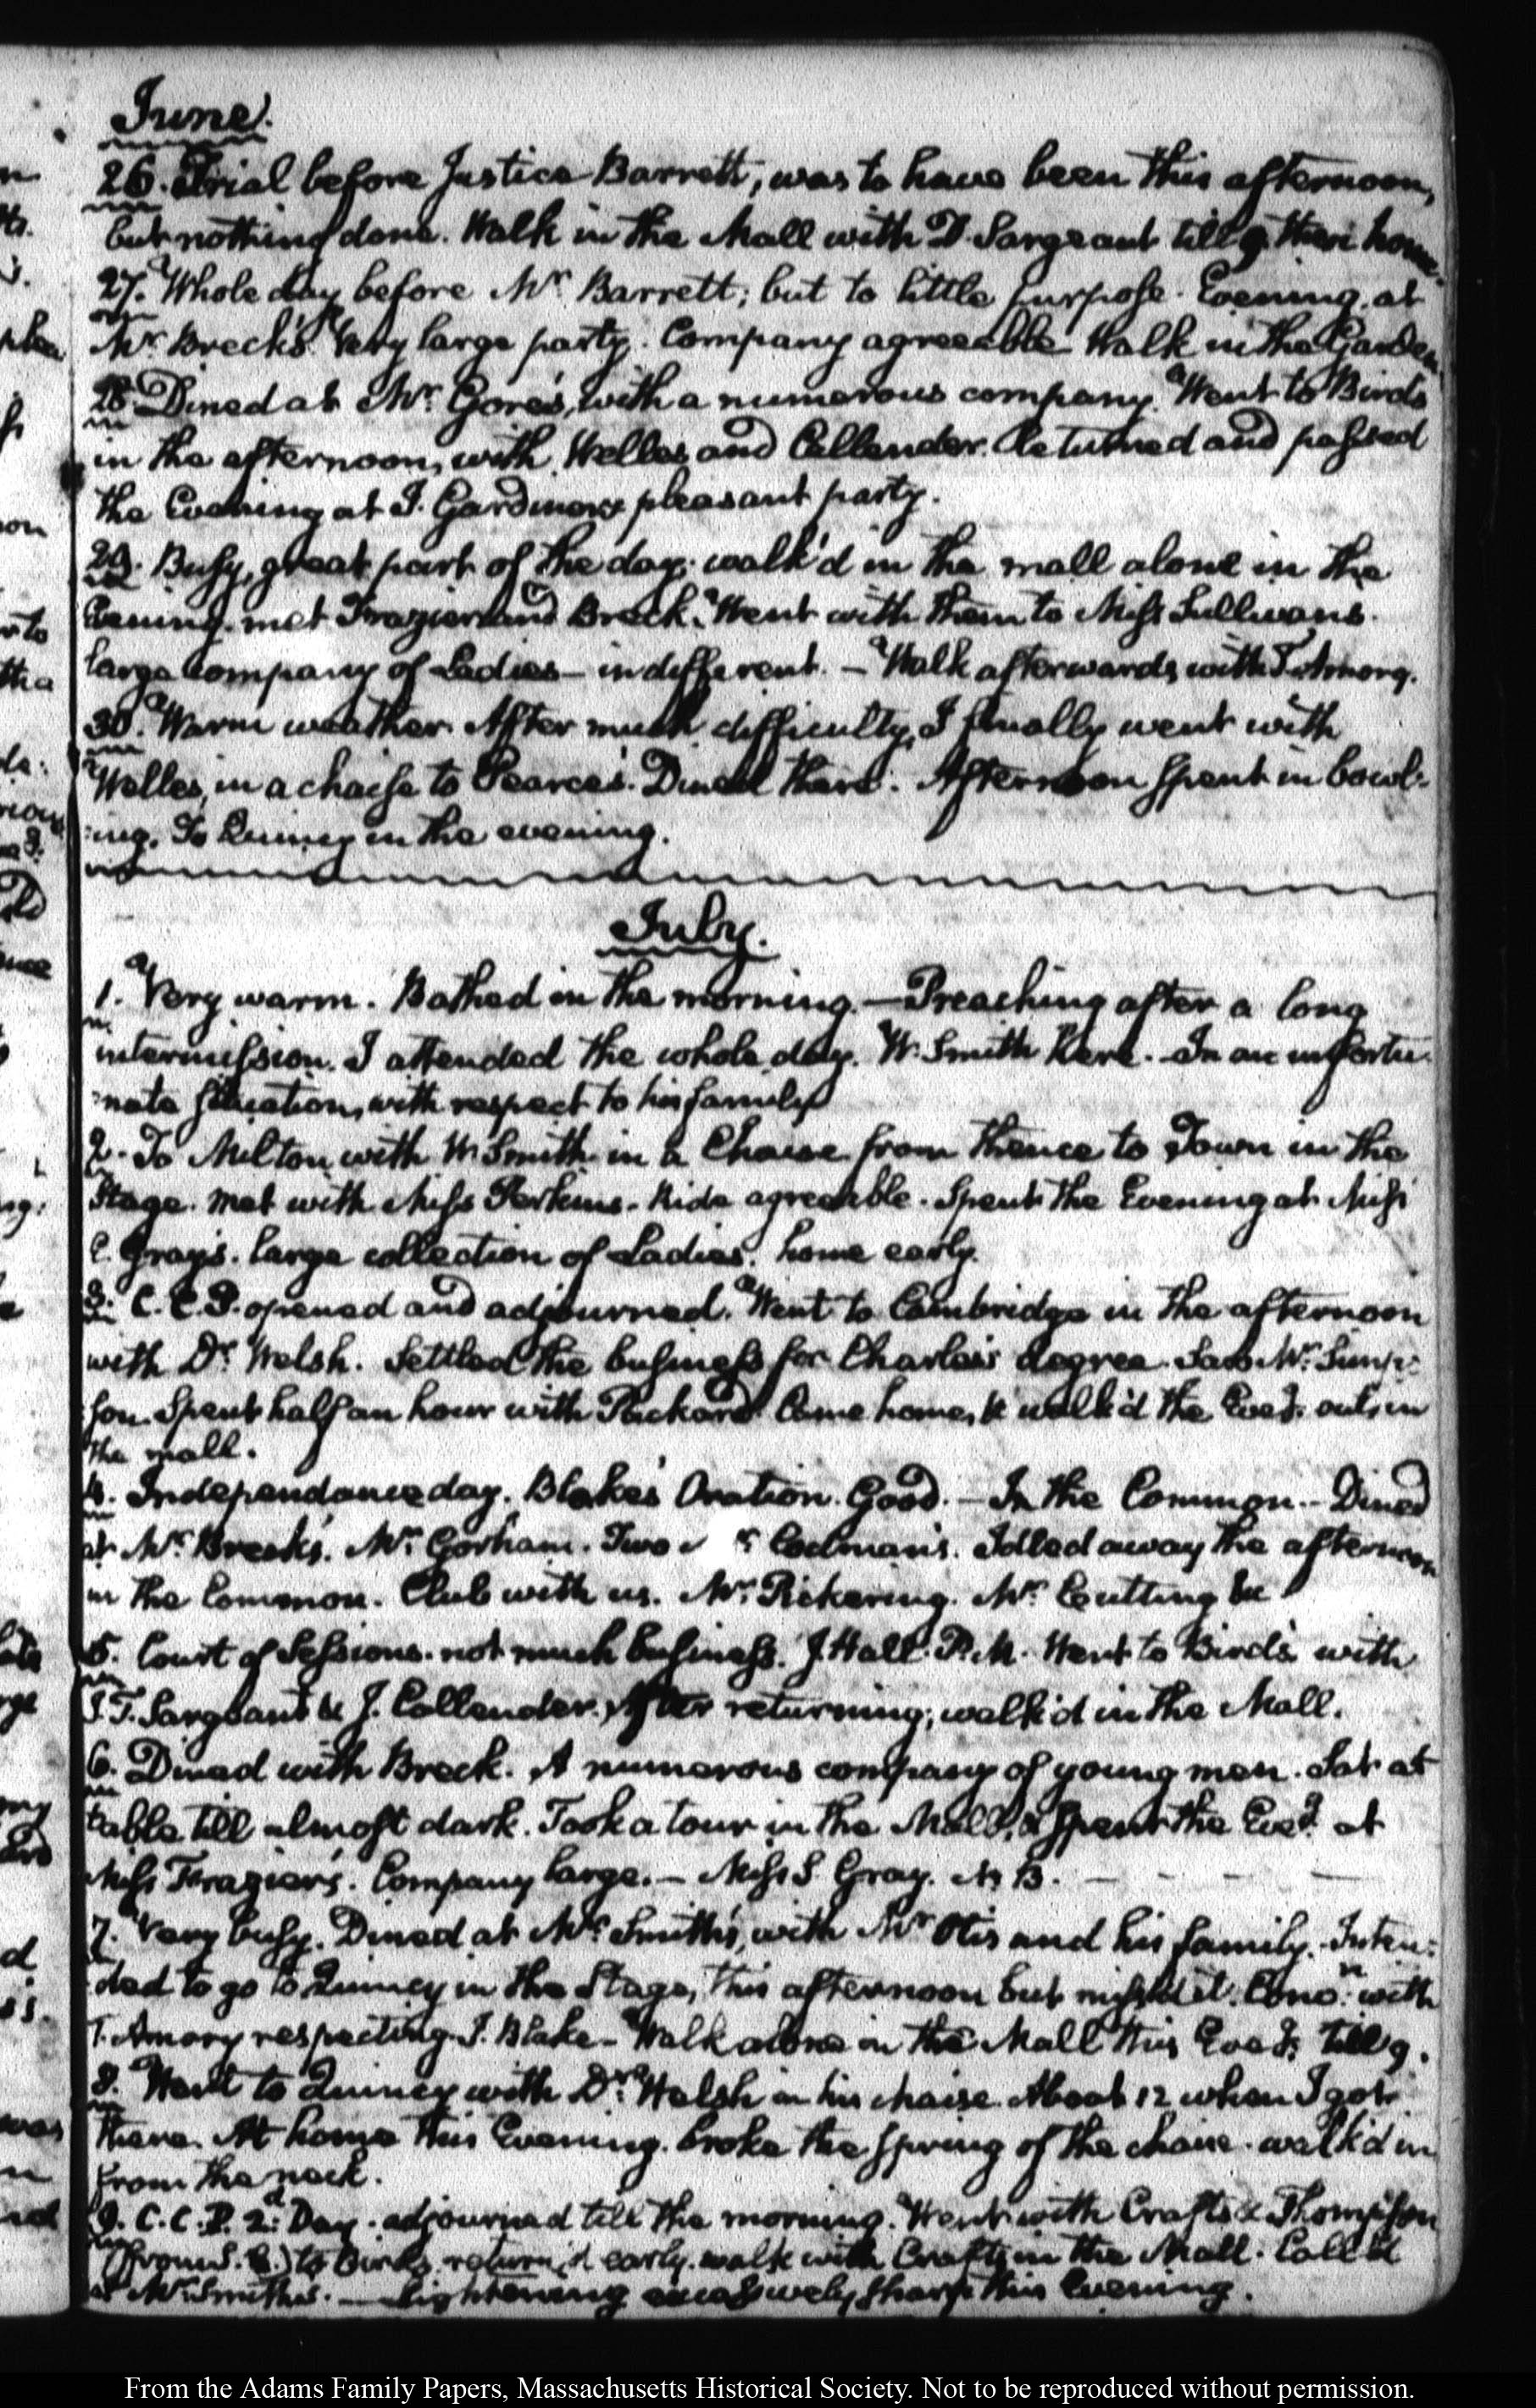 June.
26. Trial before Justice Barrett, was to have been this afternoon,
but nothing done. Walk in the Mall with D. Sargeant till 9. then home.
27. Whole day before Mr. Barrett; but to little purpose. Evening, at
Mr. Breck's. Very large party. Company agreeable. Walk in the Garden.
28. Dined at Mr. Gore's, with a numerous company. Went to Birds
in the afternoon, with Welles and Callender. Returned and passed
the Evening at J. Gardiner's pleasant party.
29. Busy, great part of the day; walk'd in the mall alone in the
Evening. met Frazier and Breck. Went with them to Miss Sullivans.
large company of Ladies — indifferent. — Walk afterwards with T. Amory.
30. Warm weather. After much difficulty, I finally went with
Welles, in a chaise to Pearce's. Dined there. Afternoon spent in bowl-
:ing. To Quincy in the evening.
July.
1. Very warm. Bathed in the morning. — Preaching after a long
intermission. I attended the whole day. W. Smith here. In an unfortu-
:nate situation, with respect to his family
2. To Milton with W. Smith in a Chaise from thence to Town in the
Stage. met with Miss Perkins. Ride agreeable. Spent the Evening at Miss
C. Gray's. large collection of Ladies. home early.
3. C. C. P. opened and adjourned. Went to Cambridge in the afternoon
with Dr. Welsh. Settled the business for Charles's degree. Saw Mr. Simp-
:son. Spent half an hour with Packard. Came home, & walk'd the Eveg. out, in
the mall.
4. Independance day. Blake's Oration. Good. — In the Common. — Dined
at Mr. Breck's. Mr. Gorham. Two Codman's. Idled away the afternoon
in the Common. Club with us. Mr. Pickering. Mr. Cutting &c
5. Court of Sessions. not much business. J. Hall. P. M. Went to Bird's with
J. T. Sargeant & J. Callender. After returning, walk'd in the Mall.
6. Dined with Breck. A numerous company of young men. Sat at
table till almost dark. Took a tour in the Mall, & spent the Eveg. at
Miss Frazier's. Company large. — Miss S. Gray. N. B. — — — —
7. Very busy. Dined at Mr. Smith's, with Mr. Otis and his family. Inten-
:ded to go to Quincy in the Stage, this afternoon but miss'd it. Conv.n with
T. Amory respecting J. Blake — Walk alone in the Mall this Eveg. till 9.
8. Went to Quincy with Dr. Welsh in his chaise. About 12 when I got
there. At home this Evening. broke the spring of the chaise. walk'd in
from the neck.
9. C. C. P. 2d. Day. adjourned till the morning. Went with Crafts & Thompson
(from S. C.) to Birds. return'd early. walk with Crafts in the Mall. Call'd
at Mr. Smith's. — Lightening excessively sharp this Evening.
From the Adams Family Papers, Massachusetts Historical Society. Not to be reproduced without permission.